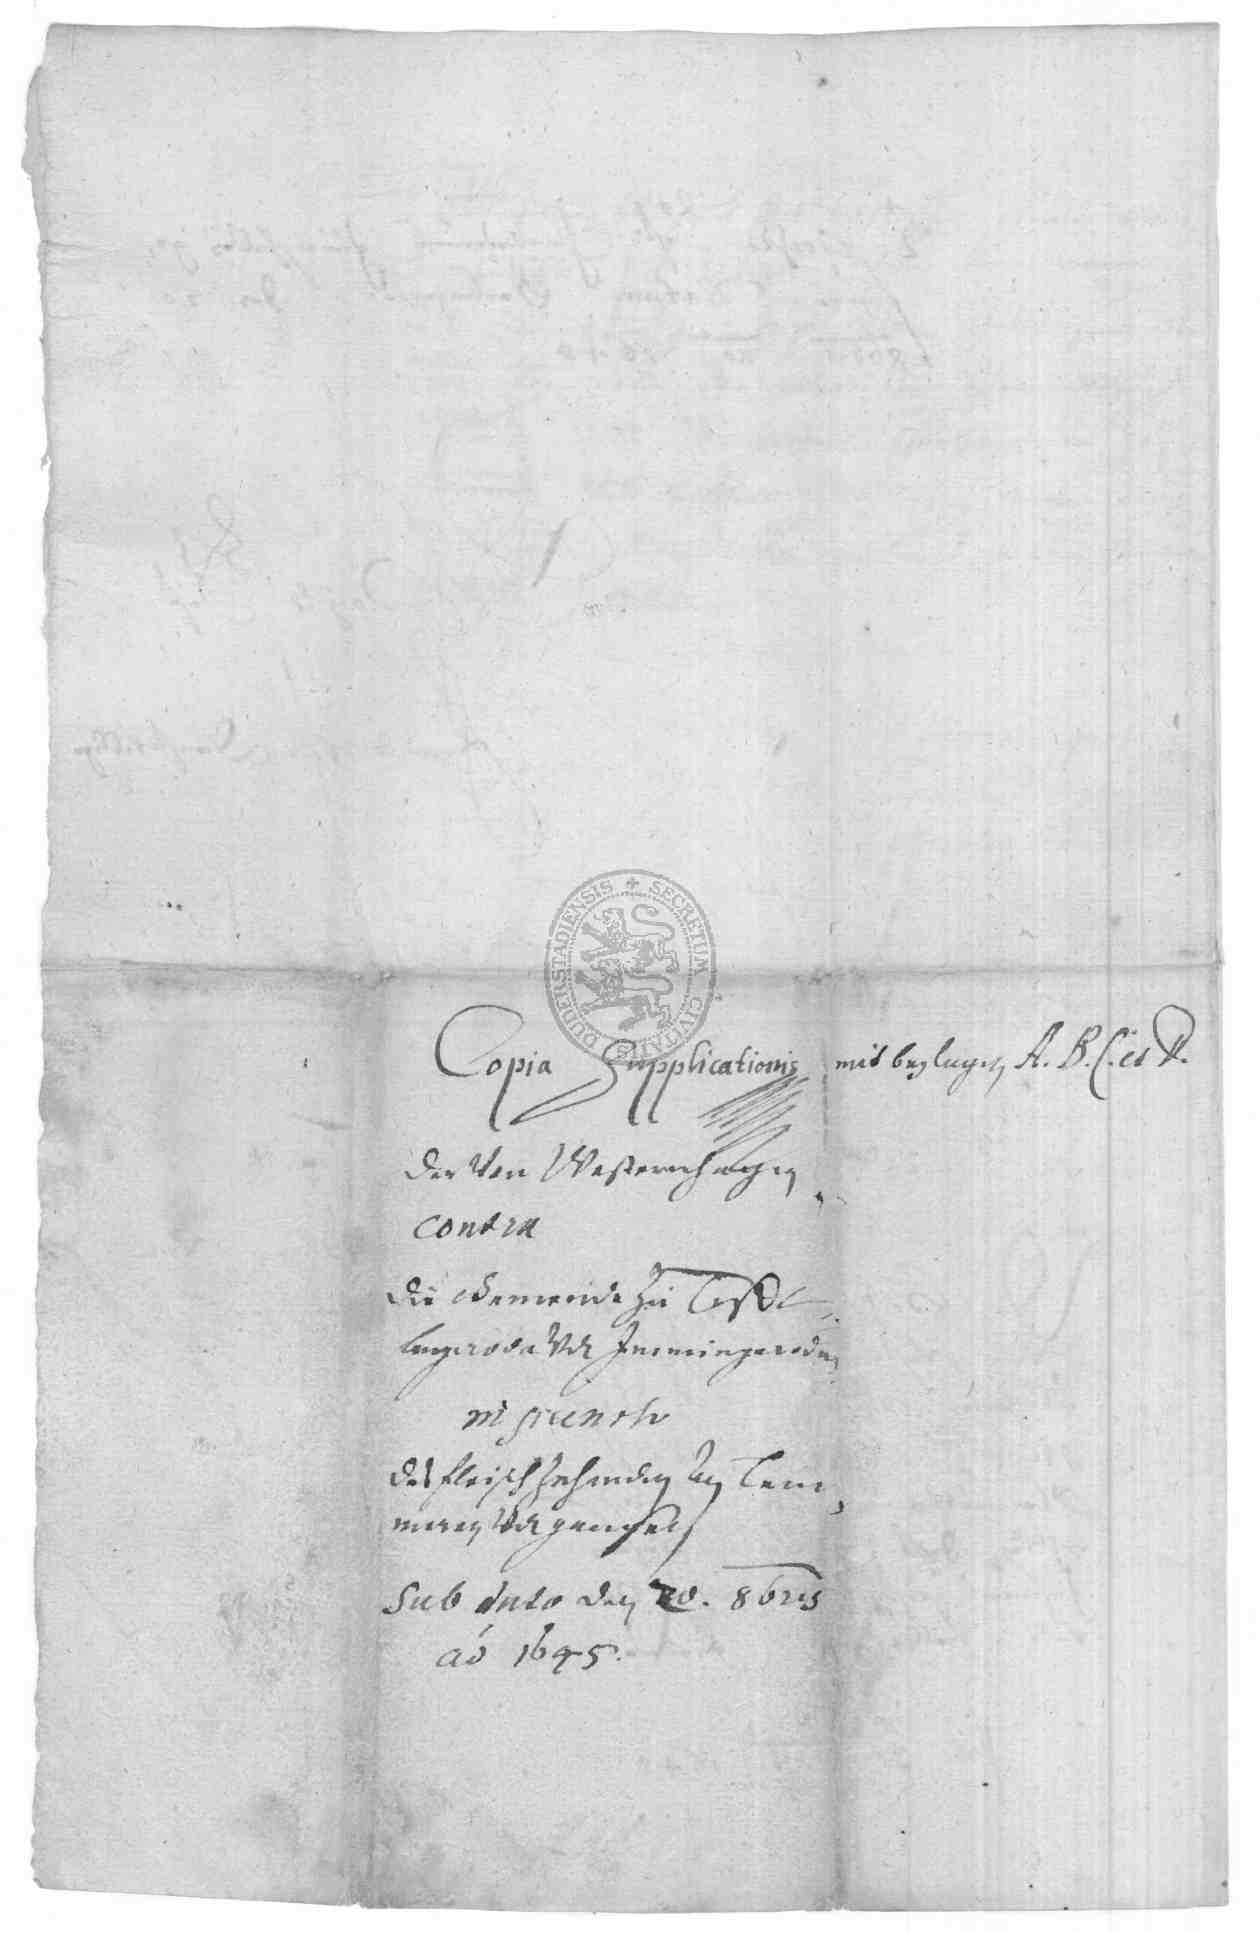 SECRETUM CIVITATIS DUDERSTADIENSIS
Copia Supplicationis mit beylagen A. B. C. et D.
der von Westernhagen
contra
die Gemeinde zu Teist
lungeroda vnd Immingeroda
in puncto
des fleischzehenden an Lem
mern vnd gensen
sub dato den 20. 8bris
aõ 1645.